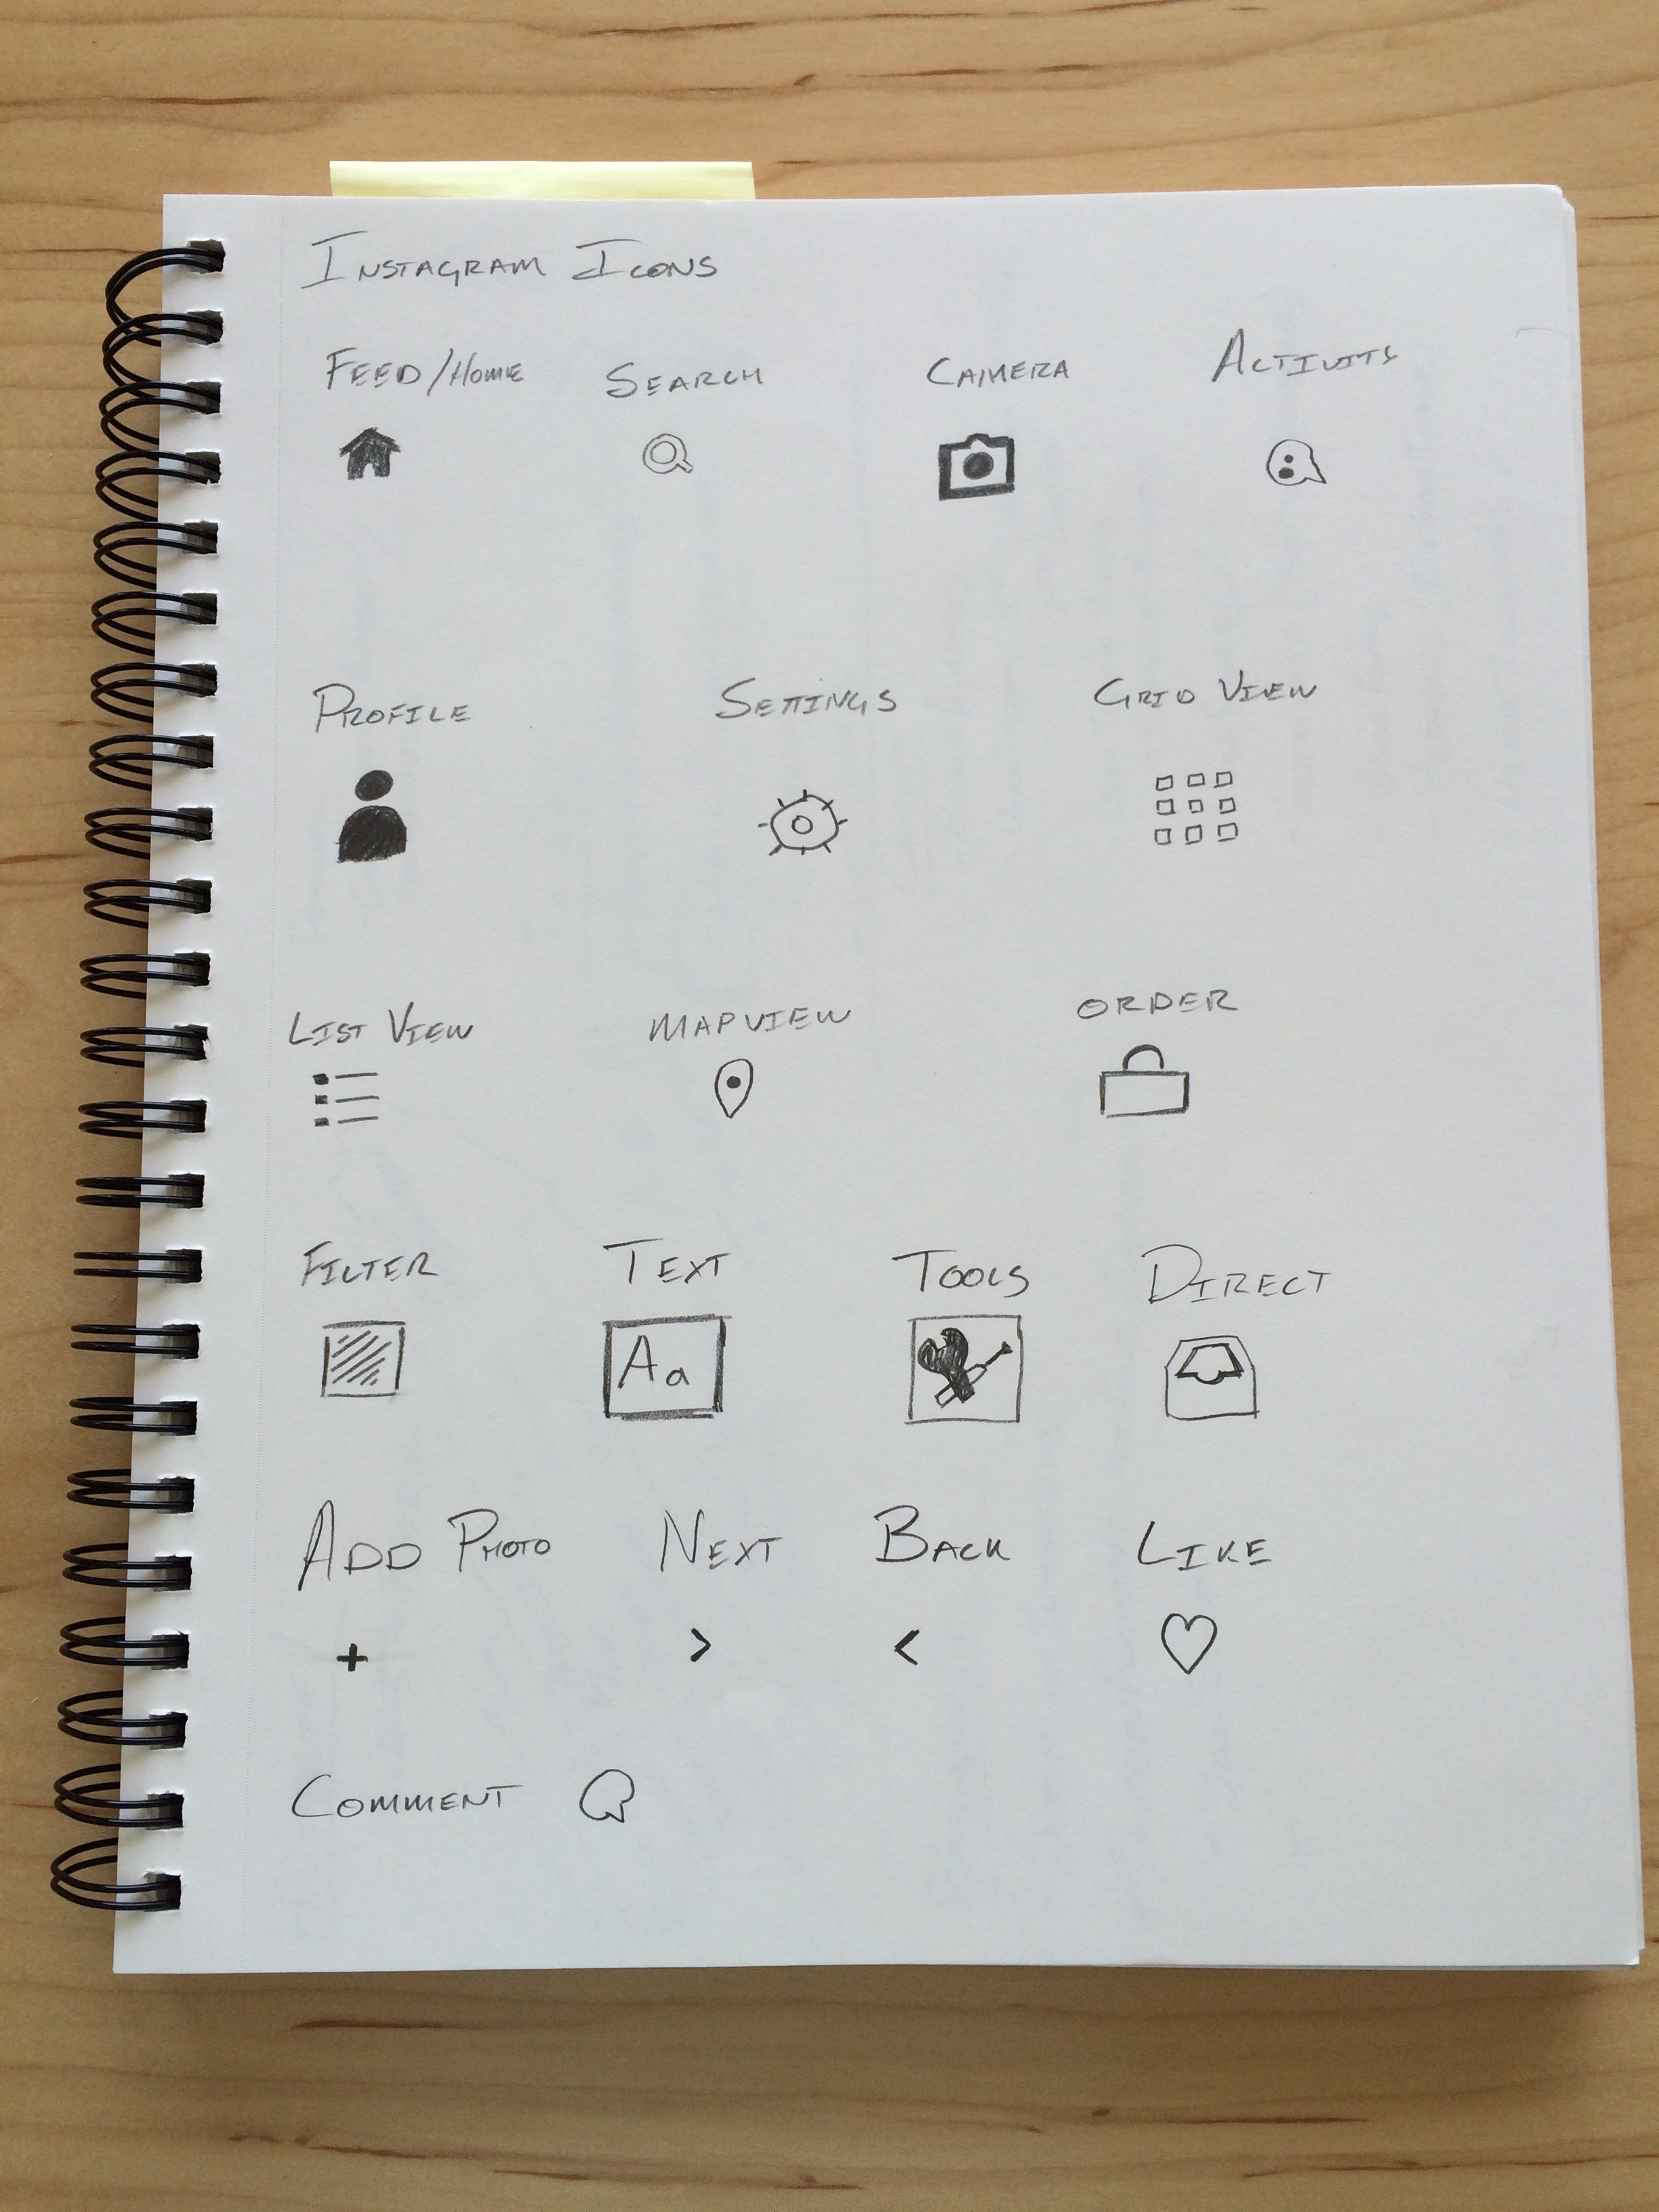 INSTAGRAM ICONS
FEED/HOME SEARCH CAMERA ACTIVITY
PROFILE SETTINGS GRID VIEW
LIST VIEW MAPVIEW ORDER
FILTER TEXT TOOLS DIRECT
Aa
ADD PHOTO NEXT BACK LIKE
+ > <
COMMENT